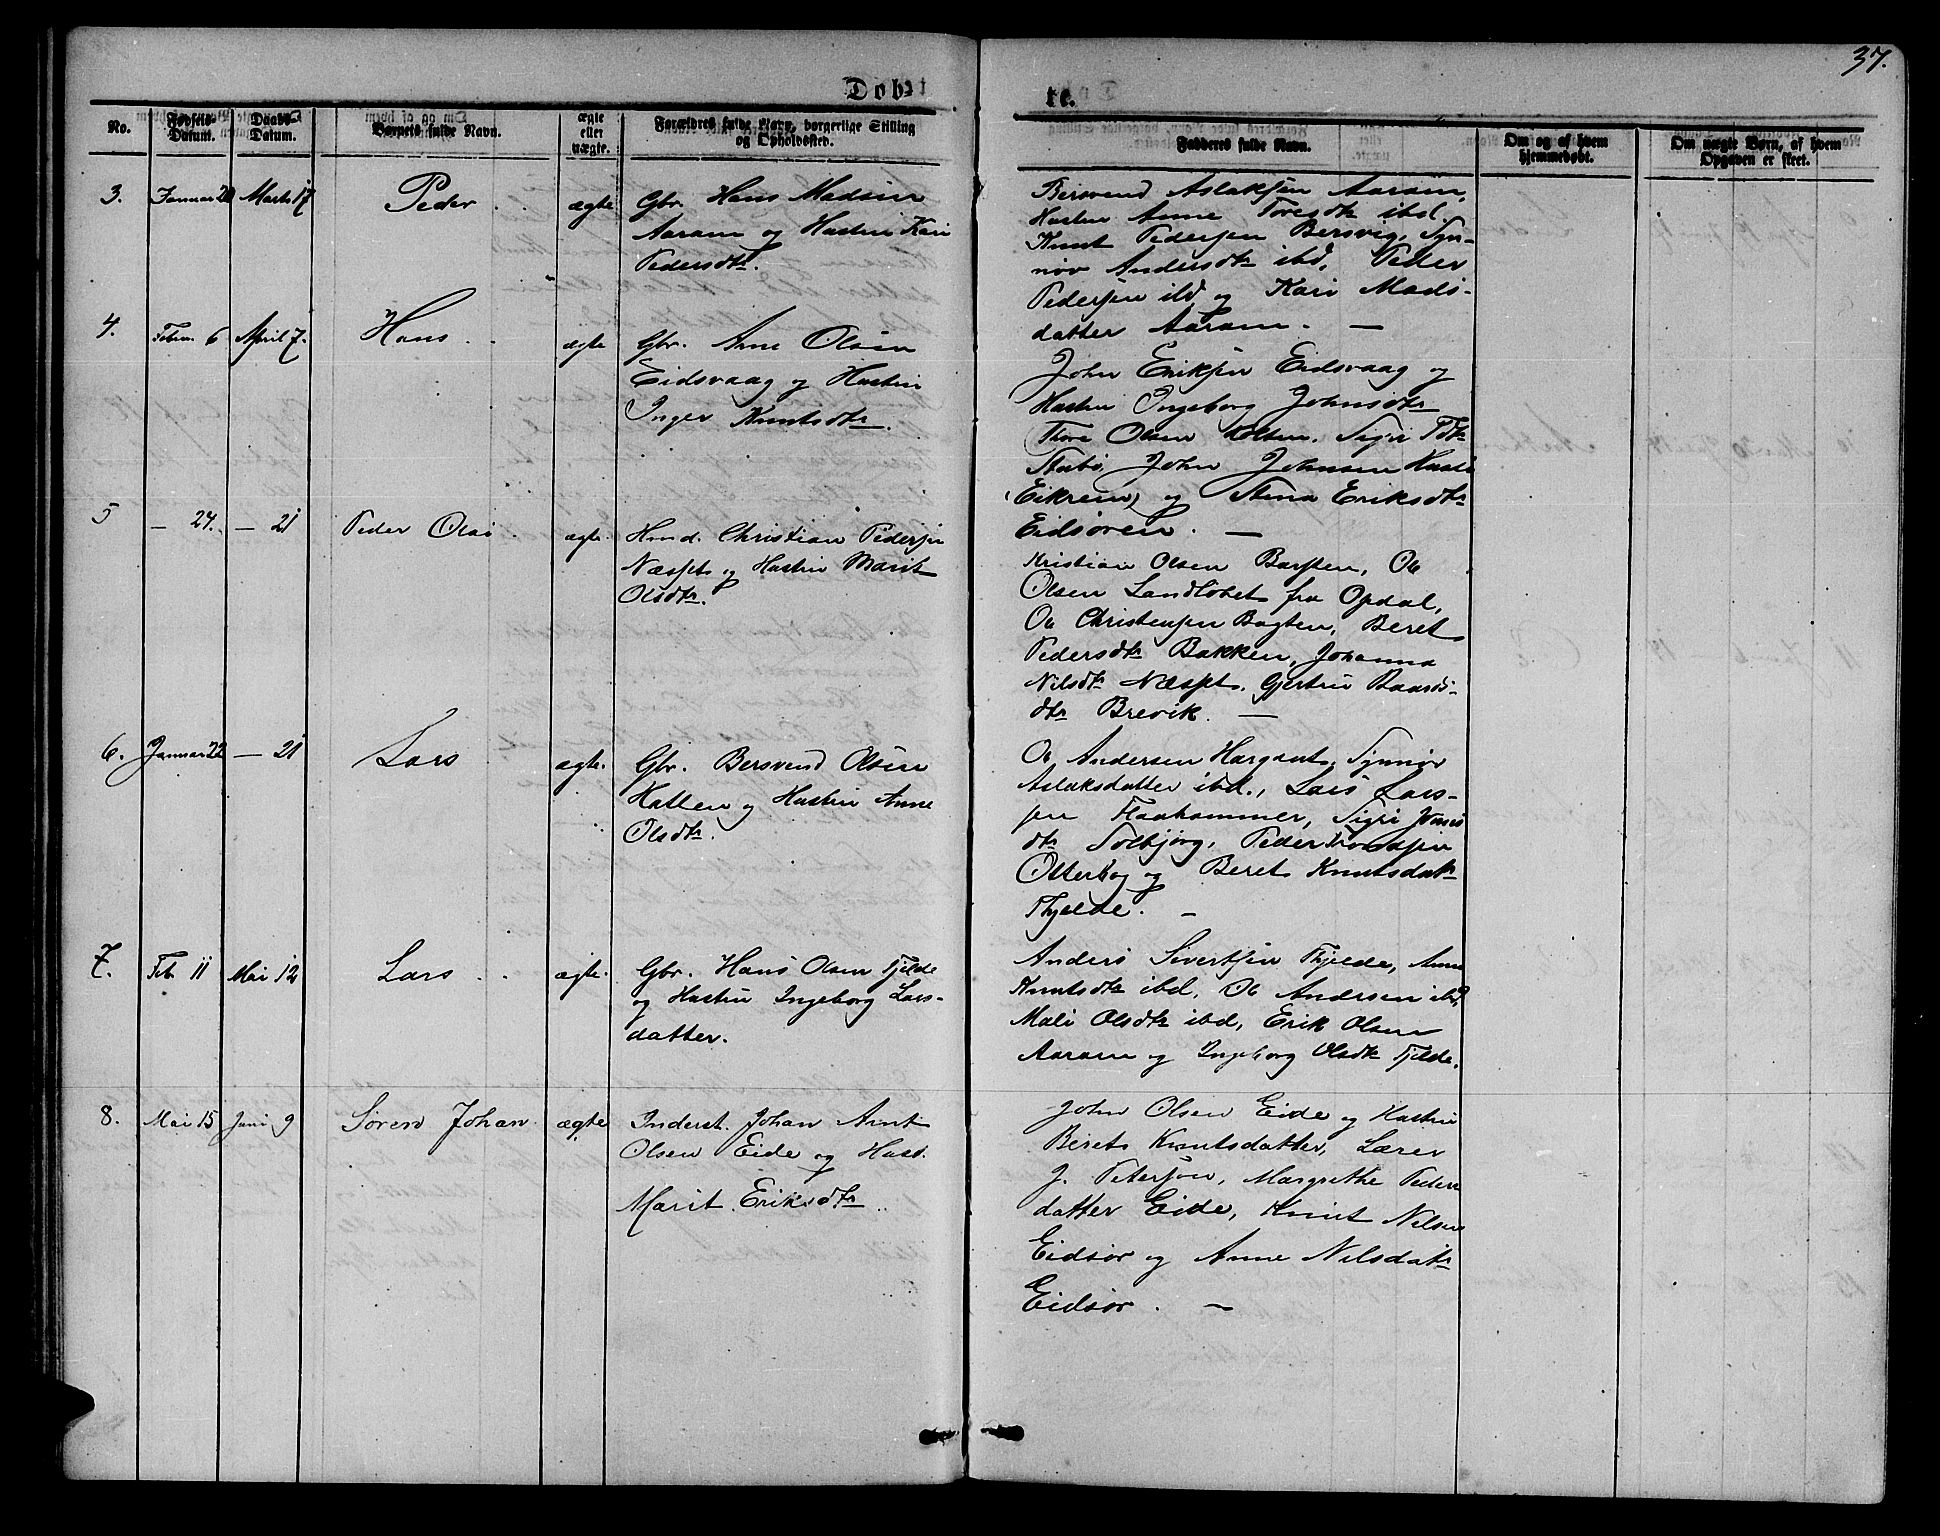 37.
Døbte.
No.
Fødsels-
Datum.
Daabs-
Datum.
Barnets fulde Navn.
ægte
eller
uægte.
Forældres fulde Navn, borgerlige Stilling
og Opholdssted.
Faddere fulde Navn.
Om og af hvem
hjemmedøbt.
Om uægte Børn, af hvem
Opgaven er skeet.
3. Januar 20 Marts 17 Peder ægte Gbr. Hans Madsen
Aaram og Hustru Kari
Pedersdtr.
Bersvend Aslaksen Aaram,
Hustru Anne Toresdtr ibd.
Knut Pedersen Bersvig, Syn-
növ Andersdtr ibd, Peder
Pedersen ibd og Kari Mads-
datter Aaram. —
4. Febru. 6 April 7. Hans ægte Gbr. Arne Olsen
Eidsvaag og Hustru
Inger Knutsdtr.
John Eriksen Eidsvaag og
Hustru Ingeborg Johnsdtr
Thore Olsen Sigri
John Johnsen
(Eikrem) og Stina Eriksdtr
Eidsøren. —
5 — 24. — 21 Peder Olai ægte. Hmd. Christian Pedersen
Næsset og Hustru Marit
Olsdtr.
Kristian Olsen Barsten, Ole
Olsen Landløbet fra Opdal,
Ole Christensen Bogten, Beret
Pedersdtr Bakken, Johanna
Nilsdtr Næsset, Gjertru Baards-
dtr Brevik. —
6. Januar 22 — 21 Lars ægte. Gbr. Bersvend Olsen
Hatlen og Hustru Anne
Olsdtr.
Ole Andersen Synnöv
Aslaksdatter ibd., Lars Lars-
sen Flaahammer, Sigri
dtr Solbjørg, Peder
Otterbog og Beret Knutsdatr
Thjelde. —
7. Feb. 11 Mai 12 Lars ægte. Gbr. Hans Olsen Tjelde
og Hustru Ingeborg Lars-
datter.
Anders Sivertsen Thjelde, Anne
Knutsdtr ibd, Ole Andersen ibd,
Mali Olsdtr ibd, Erik Olsen
Aaram og Ingeborg Olsdtr Tjelde.
8. Mai 15 Juni 9 Søren Johan ægte Inderst. Johan Arnt
Olsen Eide og Hust.
Marit Eriksdtr
John Olsen Eide og Hustru
Berets Knutsdatter, Lærer
J. Petersøn, Margrethe Peders
datter Eide, Knut Nilsen
Eidsør og Anne Nilsdatr
Eidsør. —